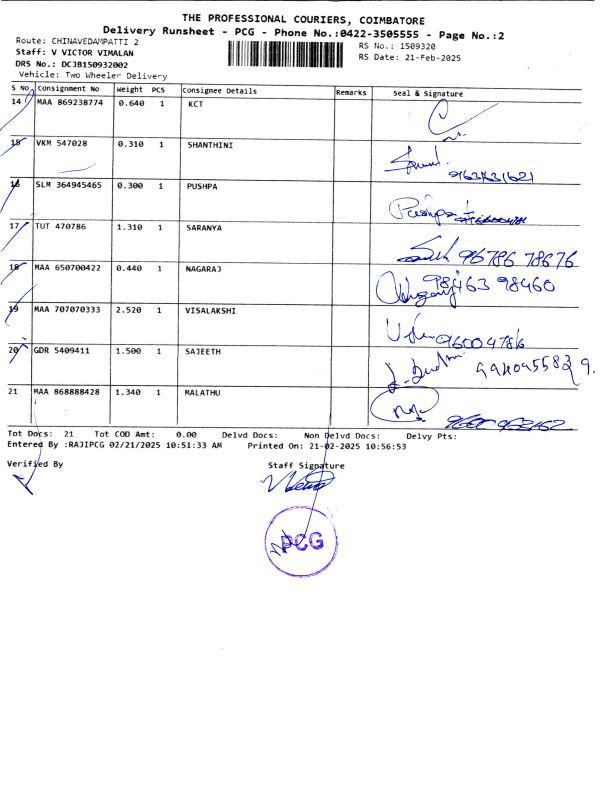 THE PROFESSIONAL COURIERS, COIMBATORE
Delivery Runsheet - PCG - Phone No.:0422-3505555 - Page No.:2
Route: CHINAVEDAMPATTI 2
RS No.: 1509320
Staff: V VICTOR VIMALAN
RS Date: 21-Feb-2025
DRS No.: DCJB150932002
Vehicle: Two Wheeler Delivery
S No Consignment No Weight PCS Consignee Details Remarks Seal & Signature
14 MAA 869238774 0.640 1 KCT
15 VKM 547028 0.310 1 SHANTHINI
16 SLM 364945465 0.300 1 PUSHPA Pushpa
17 TUT 470786 1.310 1 SARANYA 96786 78676
18 MAA 650700422 0.440 1 NAGARAJ 98463 98460
19 MAA 707070333 2.520 1 VISALAKSHI
20 GDR 5409411 1.500 1 SAJEETH
21 MAA 868888428 1.340 1 MALATHU
Tot Docs: 21 Tot COD Amt: 0.00 Delvd Docs: Non Delvd Docs: Delvy Pts:
Entered By :RAJIPCG 02/21/2025 10:51:33 AM Printed On: 21-02-2025 10:56:53
Verified By Staff Signature
PCG